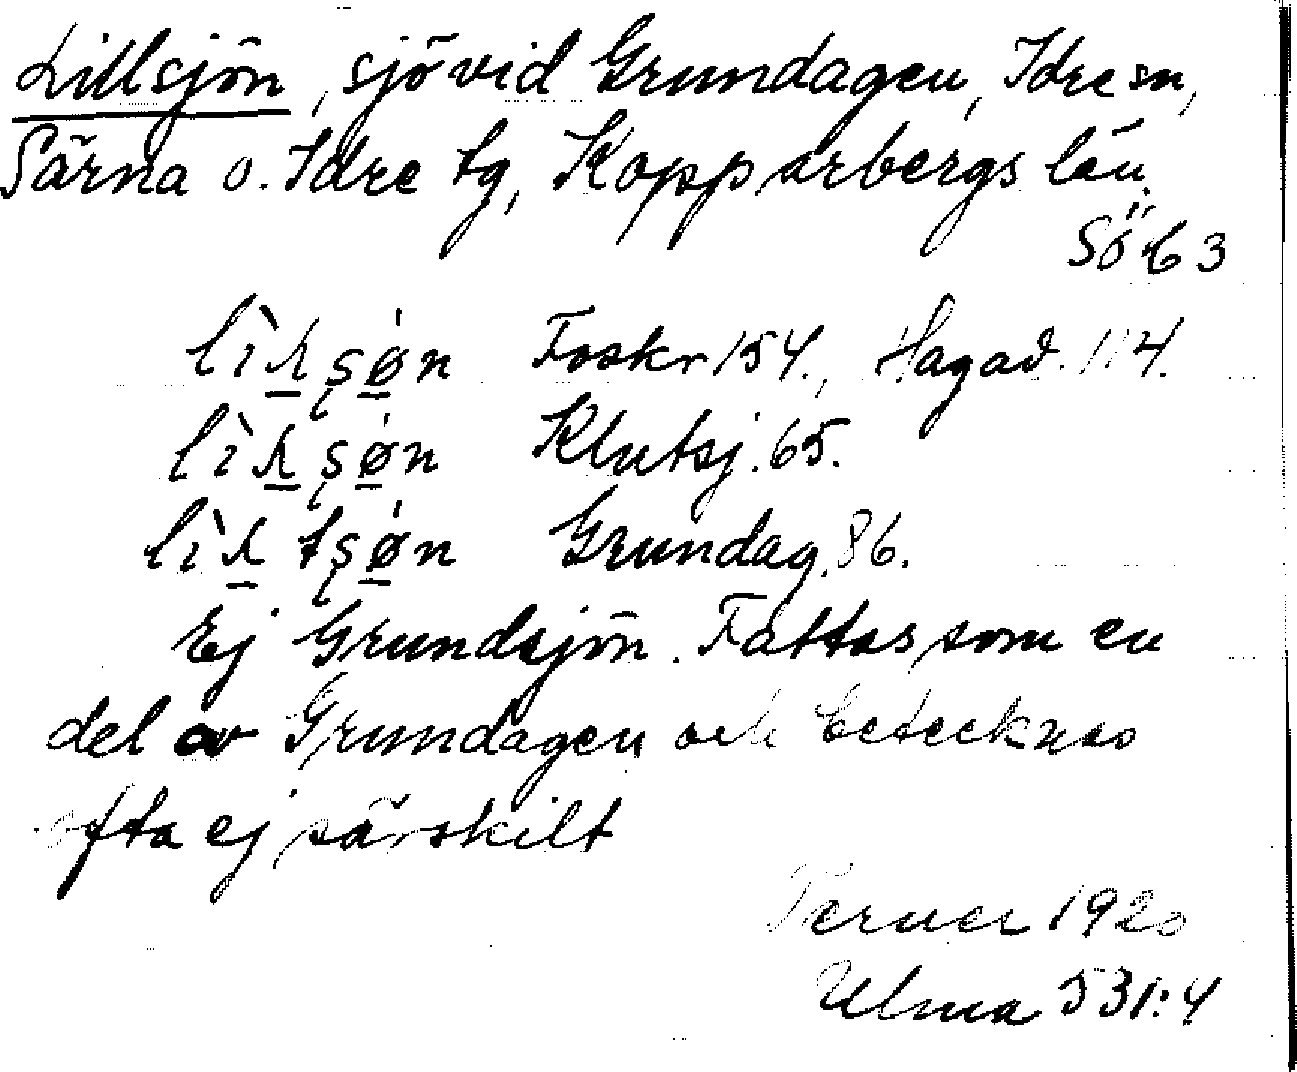 Lillsjön, sjö vid Grundagen, Idre sn,
Särna o. Idre tg, Kopparbergs län.
Sö 63
Foskr 154., Hagaå. 114.
Klutsj. 65.
Grundag. 86.
Ej Grundsjön. Fattas som en
del av Grundagen och betecknas
ofta ej särskilt
Terner 1920
Ulma 531:4